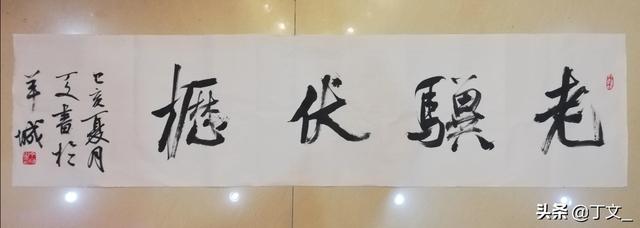 老驥伏櫪
己亥夏月
丁文書於
羊城
头条 @丁文_